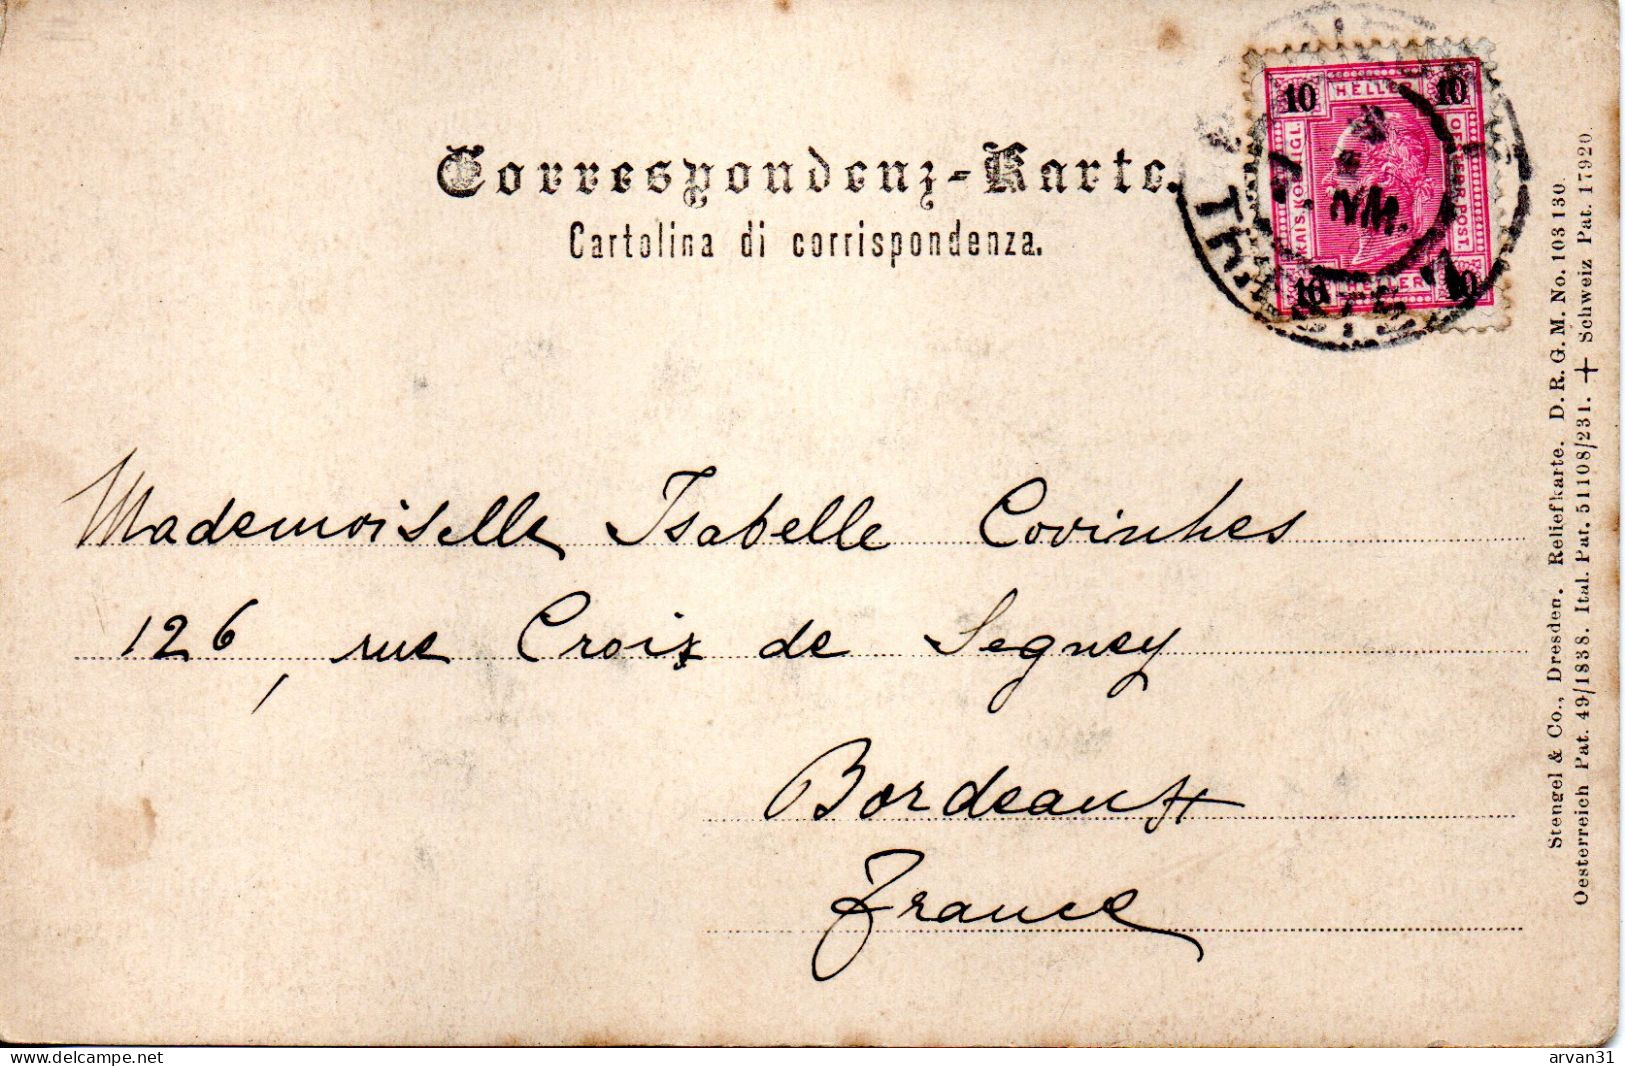 Correspondenz-Karte.
Cartolina di corrispondenza.
10 HELLER 10
KAIS. KÖNIGL.
OESTERR. POST.
10 HELLER 10
Mademoiselle Isabelle Corinthes
126, rue Croix de Seguey
Bordeaux
France
Stengel & Co., Dresden. Reliefkarte. D. R. G. M. No. 103 130.
Oesterreich Pat. 49/1838. Ital. Pat. 51108/231. + Schweiz Pat. 17920.
www.delcampe.net
arvan31